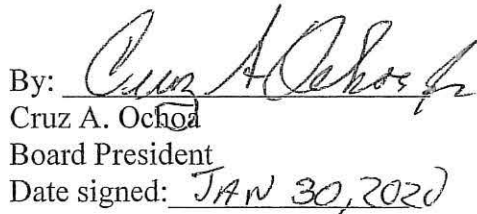 By: Cruz A Ochoa Jr
Cruz A. Ochoa
Board President
Date signed: JAN 30, 2020